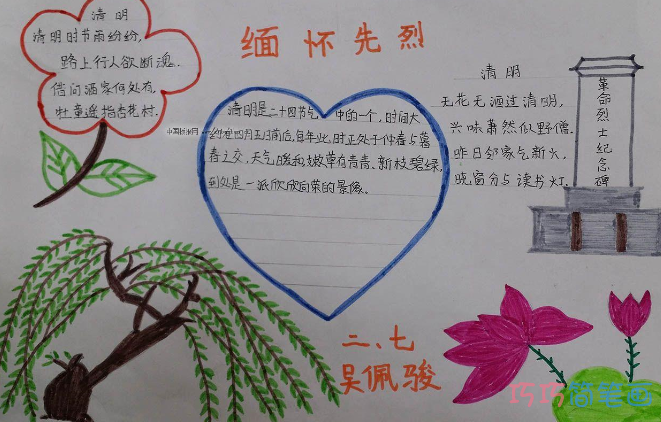 缅怀先烈
清明
清明时节雨纷纷,
路上行人欲断魂.
借问酒家何处有,
牡童遥指杏花村.
清明是二十四节气 中的一个,时间大
约在四月五日前后,每年此时正处于仲春与暮
春之交,天气暖和,嫩草青青、新枝碧绿,
到处是一派欣欣向荣的景像。
清明
无花无酒过清明,
兴味萧然似野僧.
昨日邻家乞新火,
晓窗分与读书灯.
革命烈士纪念碑
二、七
吴佩骏
巧巧简笔画